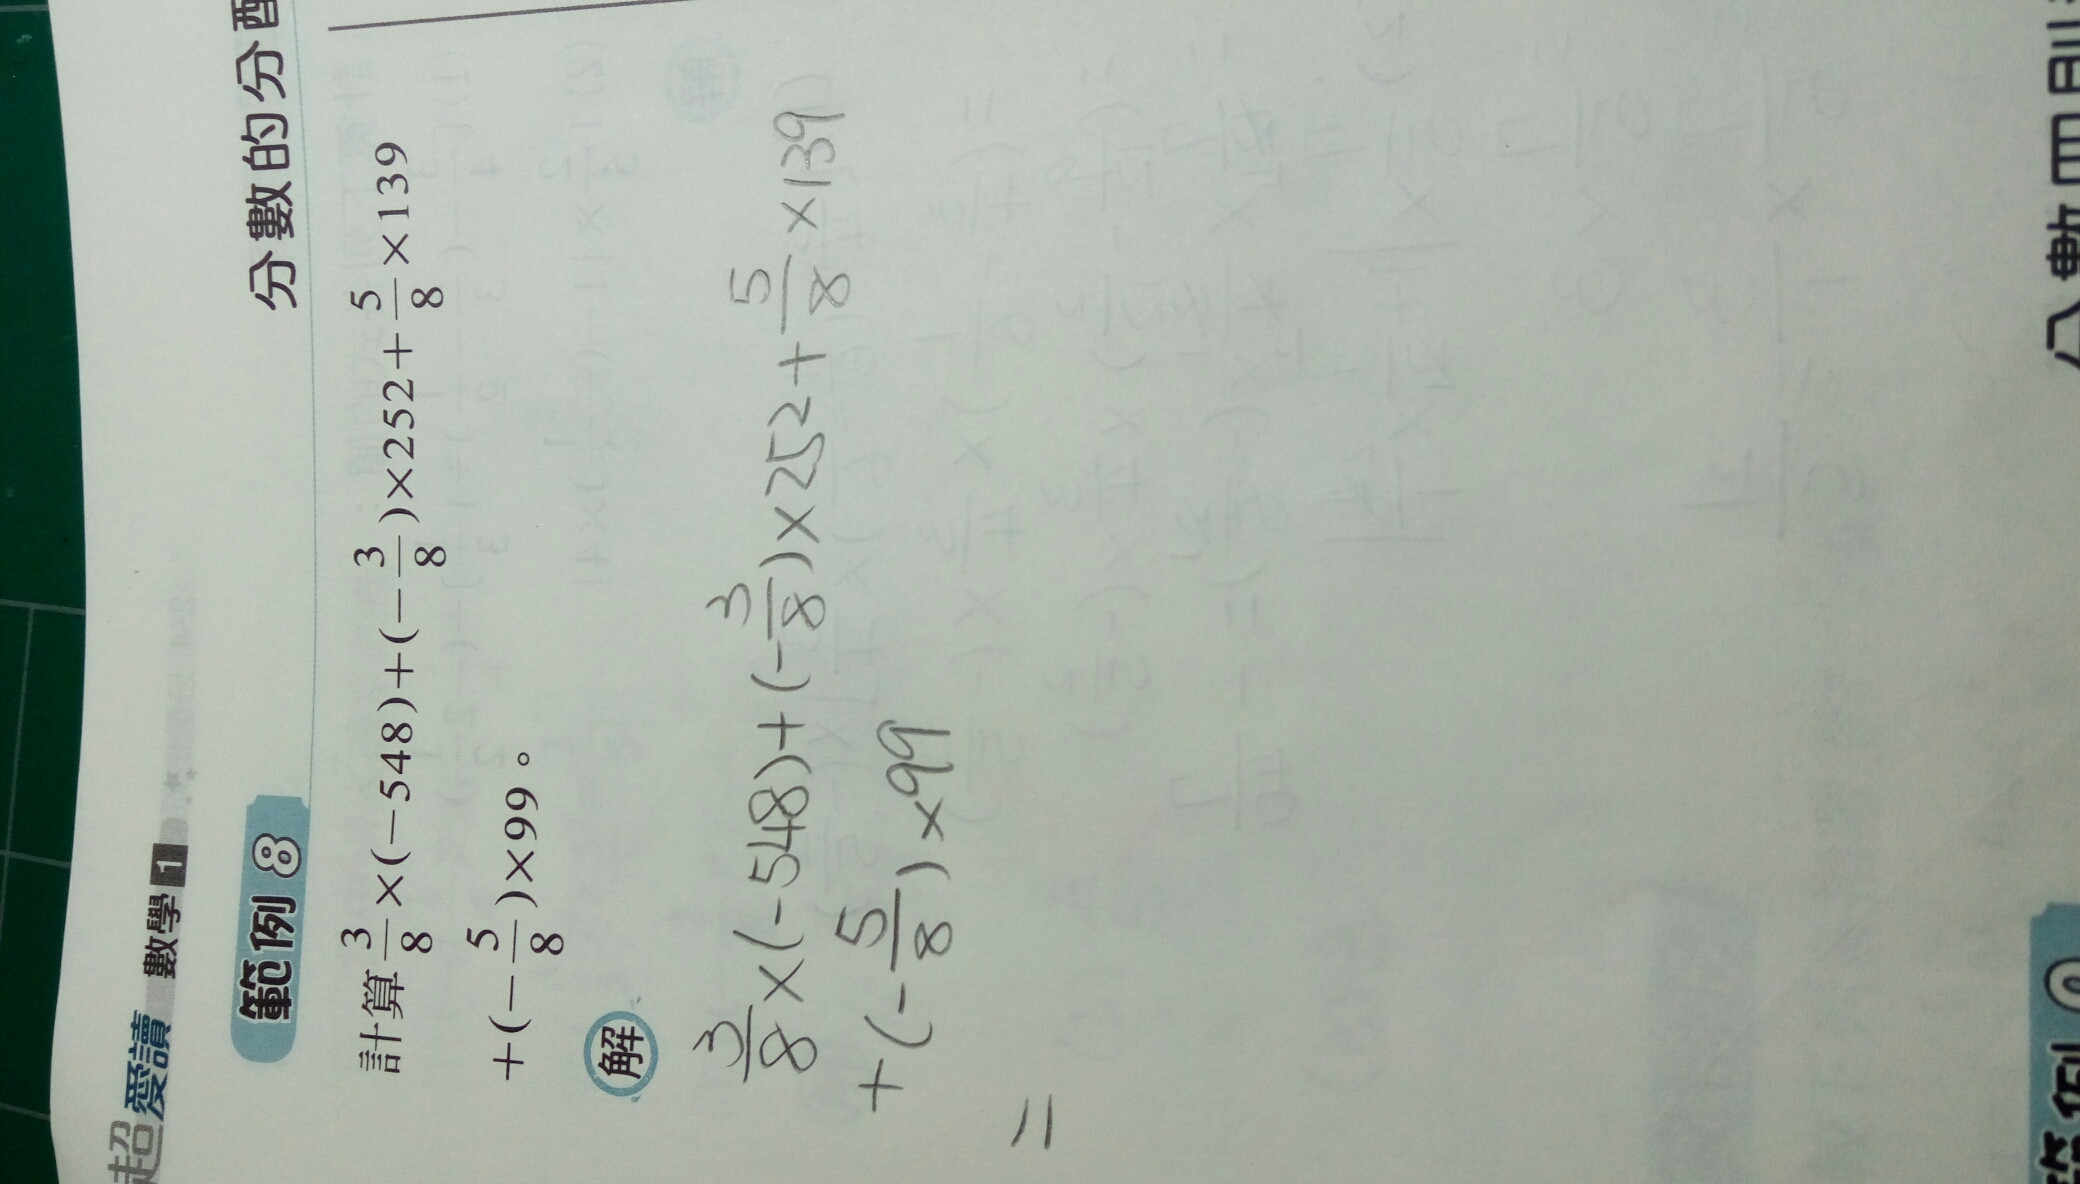 超愛讀 數學 1
範例 8
分數的分配
計算 3/8 ×(-548)+(- 3/8 )×252+ 5/8 ×139
+(- 5/8 )×99。
解
3/8 ×(-548)+(- 3/8 )×252+ 5/8 ×139
+(- 5/8 )×99
=
範例 9